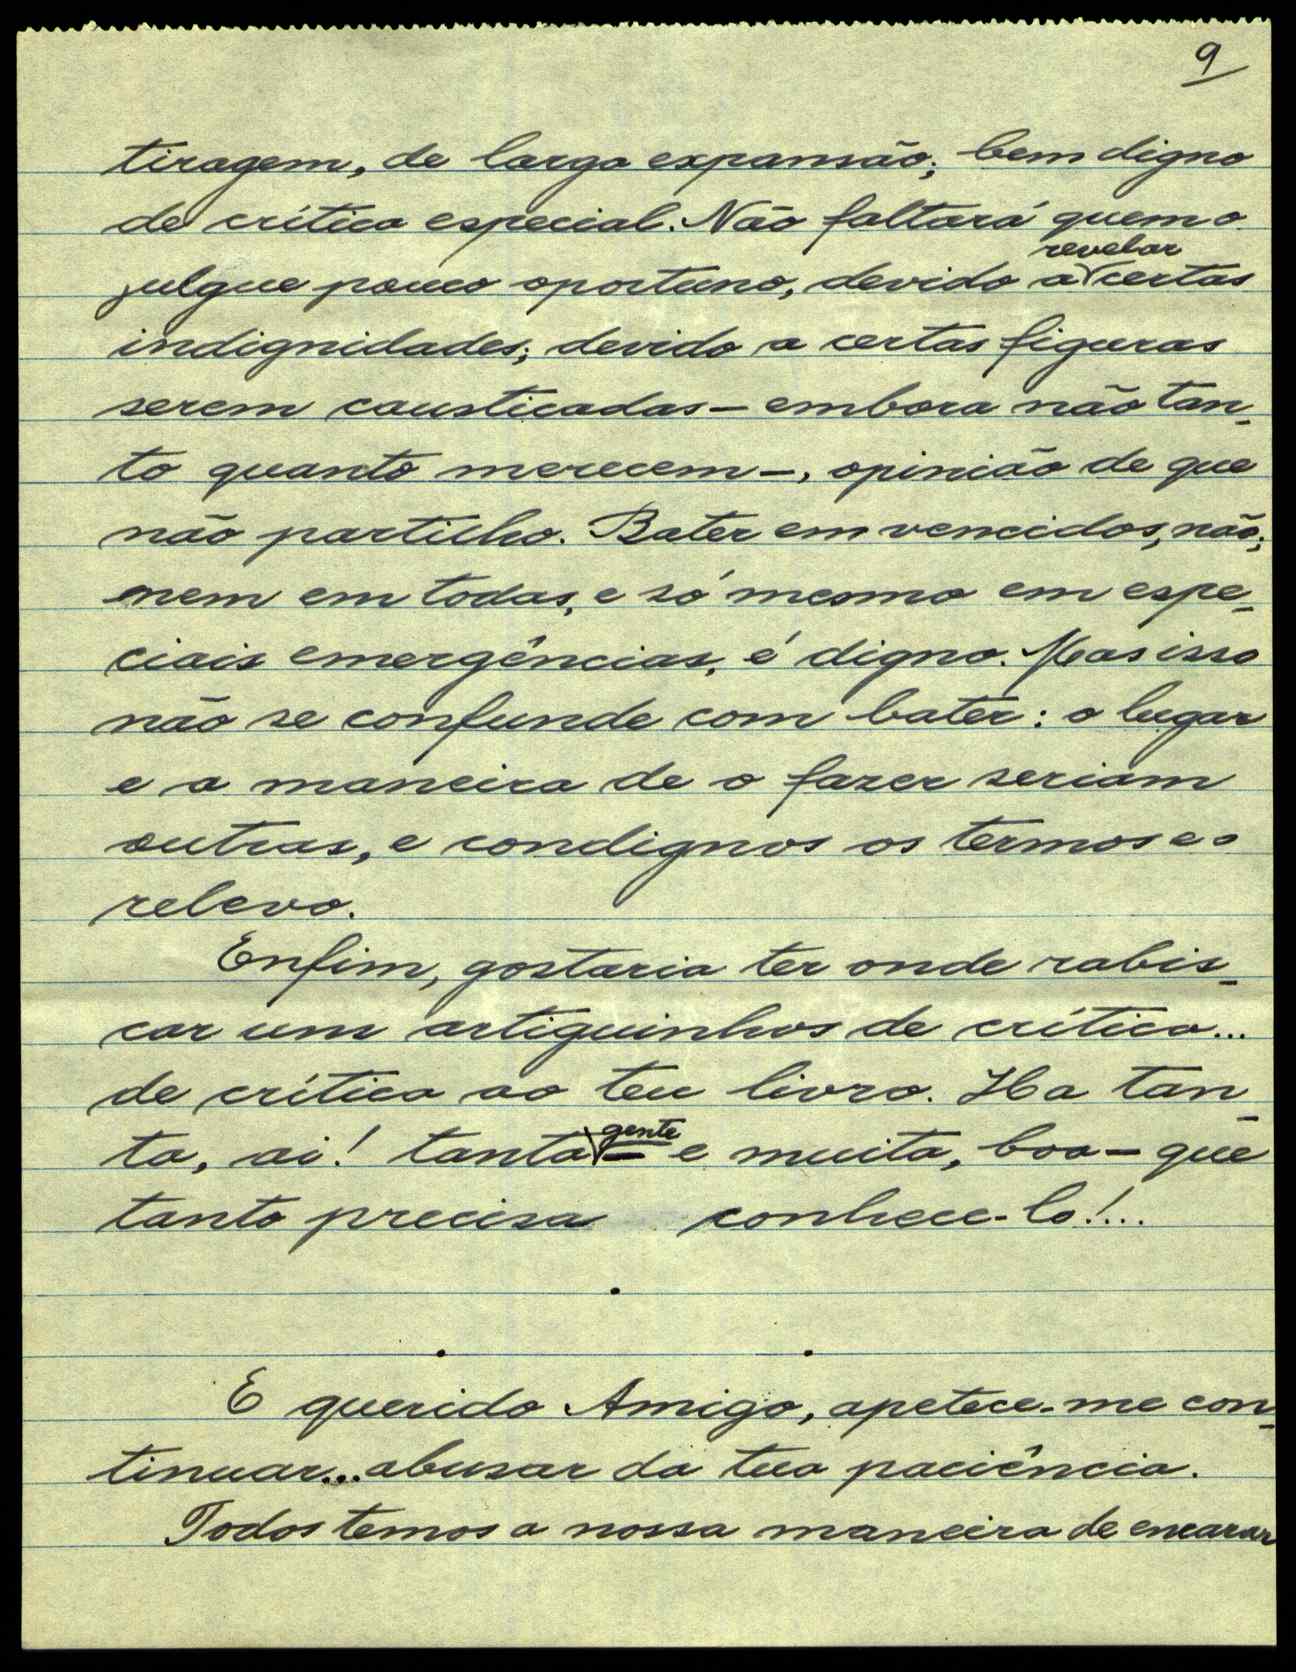 9
tiragem, de larga expansão; bem digno
de crítica especial. Não faltará quem o
julgue pouco oportuno, devido a revelar certas
indignidades; devido a certas figuras
serem causticadas – embora não tan-
to quanto merecem –, opinião de que
não partilho. Bater em vencidos, não;
nem em todas, e só mesmo em espe-
ciais emergências, é digno. Mas isso
não se confunde com bater: o lugar
e a maneira de o fazer seriam
outras, e condignos os termos e o
relevo.
Enfim, gostaria ter onde rabis-
car um artiguinhos de crítica...
de crítica ao teu livro. Ha tan-
ta, ai! tanta gente – e muita, boa – que
tanto precisa conhece-lo!...
.
. .
E querido Amigo, apetece-me con-
tinuar... abusar da tua paciência.
Todos temos a nossa maneira de encarar